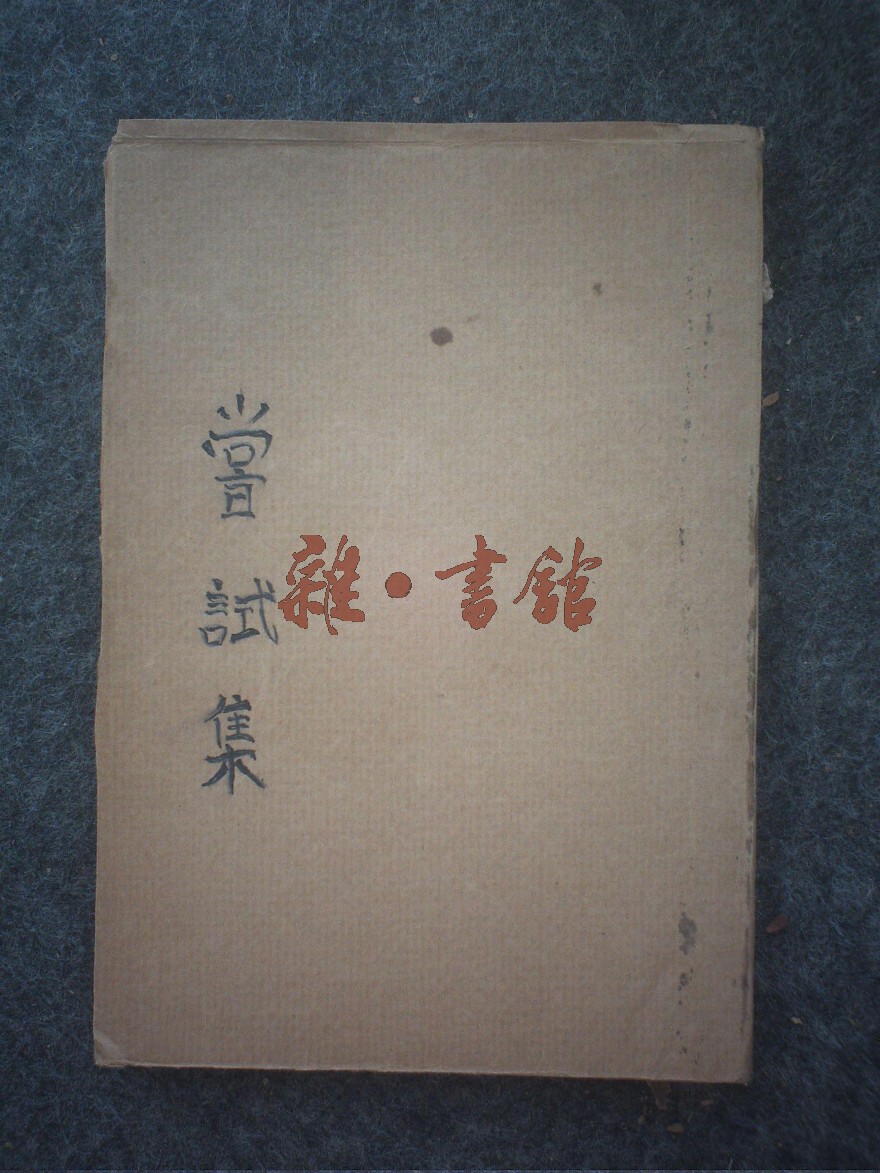 嘗試集
雜·書館